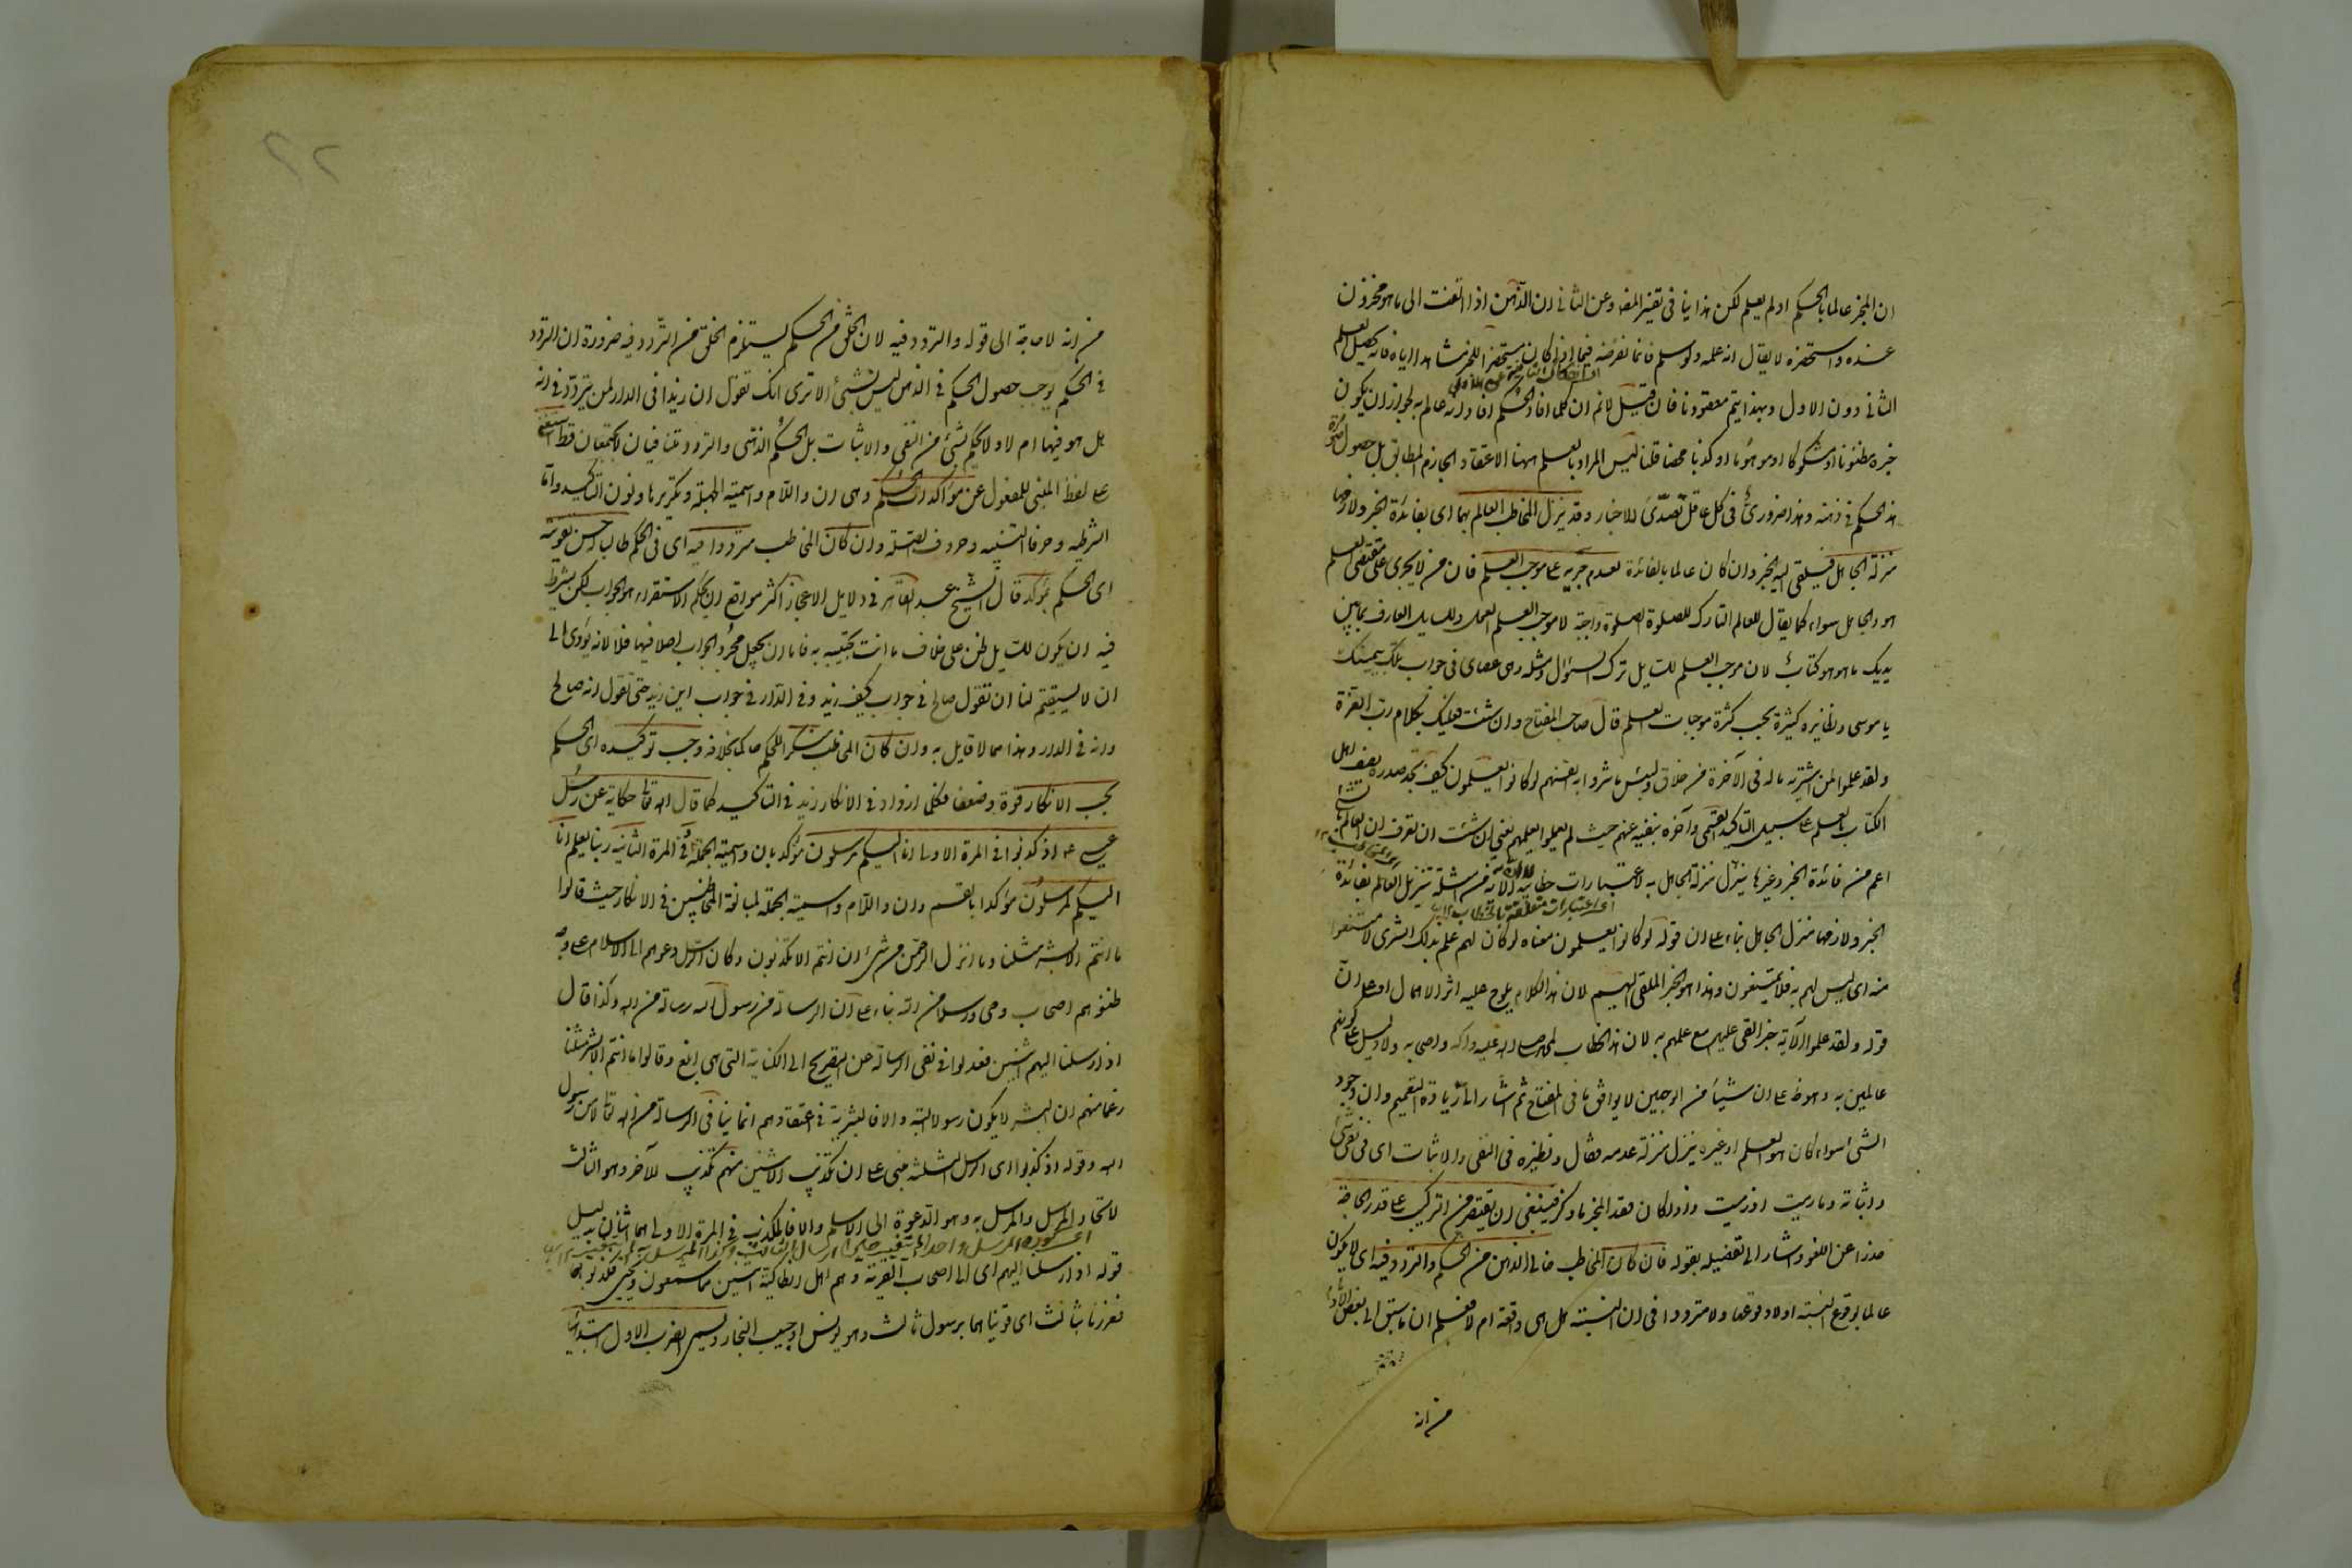 ان المخبر عالما بالحكم او لم يعلم لكن هذا ينافى تفسير المفتاح وعن الثانى ان الذهن اذا التفت الى ما هو مخزون
عنده واستحضره لا يقال انه علمه ولو سلم فانا نفرضه فيما اذا كان مستحضرا للخبر مشاهدا اياه فانه يحصل العلم
الثانى دون الاول وبهذا يتم مقصودنا فان قيل لا نم ان كلما افاد الحكم افاد انه عالم به لجواز ان يكون
خبره مظنونا او مشكوكا او موهوما او كذبا محضا قلنا ليس المراد بالعلم ههنا الاعتقاد الجازم المطابق بل حصول صورة
هذا الحكم فى ذهنه وهذا ضرورى فى كل عاقل تصدى للاخبار وقد ينزل المخاطب العالم بهما اى بفائدة الخبر ولازمها
منزلة الجاهل فيلقى اليه الخبر وان كان عالما بالفائدة لعدم جريه على موجب العلم فان من لا يجرى على مقتضى العلم
هو والجاهل سواء كما يقال للعالم التارك للصلوة الصلوة واجبة لان موجب العلم العمل وللسائل العارف بما بين
يديك ما هو هو كتاب لان موجب العلم للسائل ترك السؤال ومثله هى عصاى فى جواب وما تلك بيمينك
يا موسى ونظائره كثيرة بحسب كثرة موجبات العلم قال صاحب المفتاح وان شئت فعليك بكلام رب العزة
ولقد علموا لمن اشتريه ما له فى الآخرة من خلاق ولبئس ما شروا به انفسهم لو كانوا يعلمون كيف تجد صدره يصف اهل
الكتاب بالعلم على سبيل التاكيد القسمى وآخره ينفيه عنهم حيث لم يعملوا بعلمهم يعنى ان شئت ان تعرف ان العالم بالشئ
اعم من فائدة الخبر وغيرها ينزل منزلة الجاهل به لاعتبارات خطابية لا ان الآية من امثلة تنزيل العالم بفائدة
الخبر ولازمها منزلة الجاهل بناء على ان قوله لو كانوا يعلمون معناه لو كان لهم علم بذلك الشرى لامتنعوا
منه اى ليس لهم به فلا يمتنعون وهذا هو الخبر الملقى اليهم لان هذا الكلام يلوح عليه اثر الاهمال او على ان
قوله ولقد علموا الآية خبر القى عليهم مع علمهم به لان هذا الخطاب لمحمد صلى الله عليه وآله واصحابه ولا دليل على كونهم
عالمين به وهو ظ على ان شيئا من الوجهين لا يوافق ما فى المفتاح ثم اشار الى زيادة التعميم وان وجود
الشئ سواء كان هو العلم او غيره ينزل منزلة عدمه فقال ونظيره فى النفى والاثبات اى فى نفى شئ
واثباته وما رميت اذ رميت واذا كان قصد المخبر ما ذكر فينبغى ان يقتصر من التركيب على قدر الحاجة
حذرا عن اللغو واشار الى تفصيله بقوله فان كان المخاطب خالى الذهن من الحكم والتردد فيه اى لا يكون
عالما بوقوع النسبة او لا وقوعها ولا مترددا فى ان النسبة هل هى واقعة ام لا فعلم ان ما سبق الى بعض الاوهام
من انه
من انه لا حاجة الى قوله والتردد فيه لان الخلو من الحكم يستلزم الخلو من التردد فيه ضرورة ان التردد
فى الحكم يوجب حصول الحكم فى الذهن ليس بشئ الا ترى انك تقول ان زيدا فى الدار لمن يتردد فى انه
هل هو فيها ام لا ولا يحكم بشئ من النفى والاثبات بل الحكم الذهنى والتردد متنافيان لا يجتمعان قط استغنى
على لفظ المبنى للمفعول عن مؤكدات الحكم وهى ان واللام واسمية الجملة وتكريرها ونون التاكيد واما
الشرطية وحرف التنبيه وحروف الصلة وان كان المخاطب مترددا فيه اى فى الحكم طالبا حسن تقويته
اى الحكم بمؤكد قال الشيخ عبد القاهر فى دلايل الاعجاز اكثر مواقع ان بحكم الاستقراء هو الجواب لكن يشترط
فيه ان يكون للسائل ظن على خلاف ما انت تجيبه به فاما ان يجعل مجرد الجواب اصلا فيها فلا لانه يؤدى الى
ان لا يستقيم لنا ان نقول صالح فى جواب كيف زيد وفى الدار فى جواب اين زيد حتى نقول انه صالح
وانه فى الدار وهذا مما لا قايل به وان كان المخاطب منكرا للحكم حاكما بخلافه وجب توكيده اى الحكم
بحسب الانكار قوة وضعفا فكلما ازداد فى الانكار زيد فى التاكيد كما قال الله تعالى حكاية عن رسل
عيسى ع اذ كذبوا فى المرة الاولى انا اليكم مرسلون مؤكدا بان واسمية الجملة وفى المرة الثانية ربنا يعلم انا
اليكم لمرسلون مؤكدا بالقسم وان واللام واسمية الجملة لمبالغة المخاطبين فى الانكار حيث قالوا
ما انتم الا بشر مثلنا وما انزل الرحمن من شئ ان انتم الا تكذبون وكان الرسل دعوهم الى الاسلام على وجه
ظنوهم اصحاب وحى ورسلا من الله بناء على ان الرسالة من رسول الله رسالة من الله وكذا قال
اذ ارسلنا اليهم اثنين فعدلوا فى نفى الرسالة عن التصريح الى الكناية التى هى ابلغ وقالوا ما انتم الا بشر مثلنا
زعما منهم ان البشر لا يكون رسولا البتة والا فالبشرية فى اعتقادهم انما ينافى الرسالة من الله تعالى لا من رسول
الله وقوله اذ كذبوا اى الرسل الثلثة مبنى على ان تكذيب الاثنين منهم تكذيب للآخر وهو الثالث
لاتحاد المرسل والمرسل به وهو الدعوة الى الاسلام والا فالمكذب فى المرة الاولى هما اثنان بدليل
قوله اذ ارسلنا اليهم اى الى اصحاب القرية وهم اهل انطاكية اثنين هما شمعون ويحيى فكذبوهما
فعززنا بثالث اى قويناهما برسول ثالث وهو بولس او حبيب النجار ويسمى الضرب الاول ابتدائيا